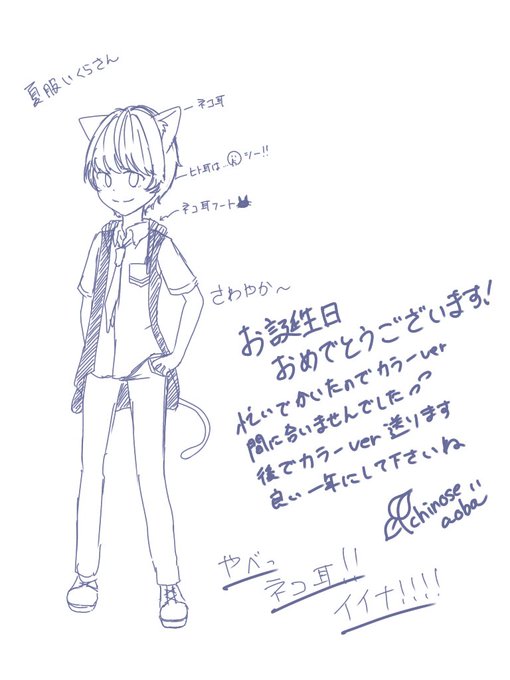 夏服いくらさん
ネコ耳
ヒト耳は シー!!
ネコ耳フード
さわやか〜
お誕生日
おめでとうございます!
忙いでかいたのでカラーver
間に合いませんでした
後でカラーver送ります
良い一年にして下さいね
chinose
aoba
やべっ
ネコ耳!!
イイナ!!!!